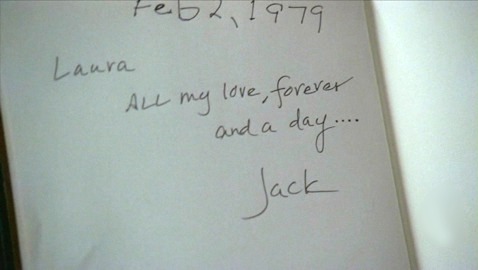 Feb 2, 1979
Laura
ALL my love, forever
and a day....
Jack